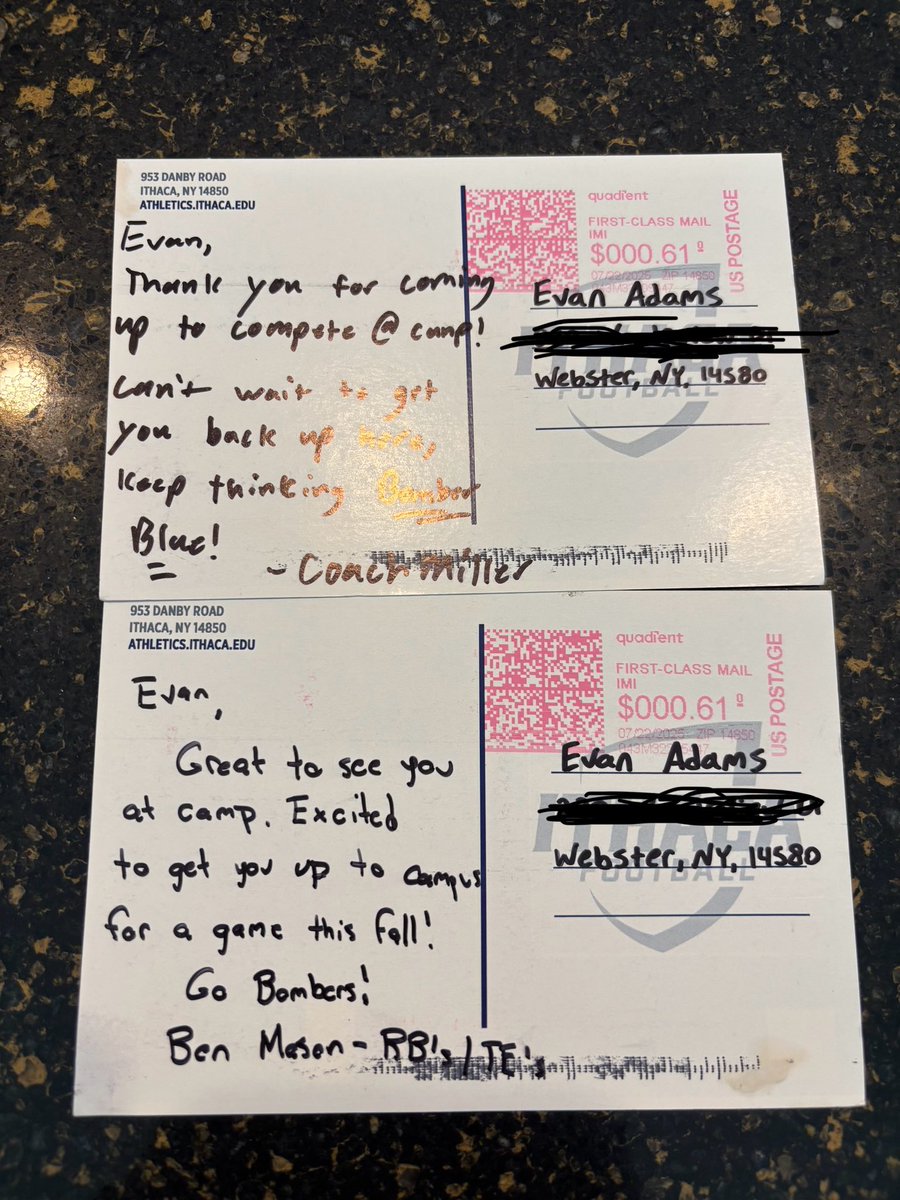 953 DANBY ROAD
ITHACA, NY 14850
ATHLETICS.ITHACA.EDU
Evan,
Thank you for coming
up to compete @ camp!
Can't wait to get
you back up here,
Keep thinking Bomber
Blue!
- Coach Miller
quadient
FIRST-CLASS MAIL
IMI
$000.61 0
07/22/2025 ZIP 14850
US POSTAGE
Evan Adams
Webster, NY, 14580
ITHACA
FOOTBALL
953 DANBY ROAD
ITHACA, NY 14850
ATHLETICS.ITHACA.EDU
Evan,
Great to see you
at camp. Excited
to get you up to campus
for a game this Fall!
Go Bombers!
Ben Mason - RB's / TE's
quadient
FIRST-CLASS MAIL
IMI
$000.61 0
07/22/2025 ZIP 14850
US POSTAGE
Evan Adams
Webster, NY, 14580
ITHACA
FOOTBALL